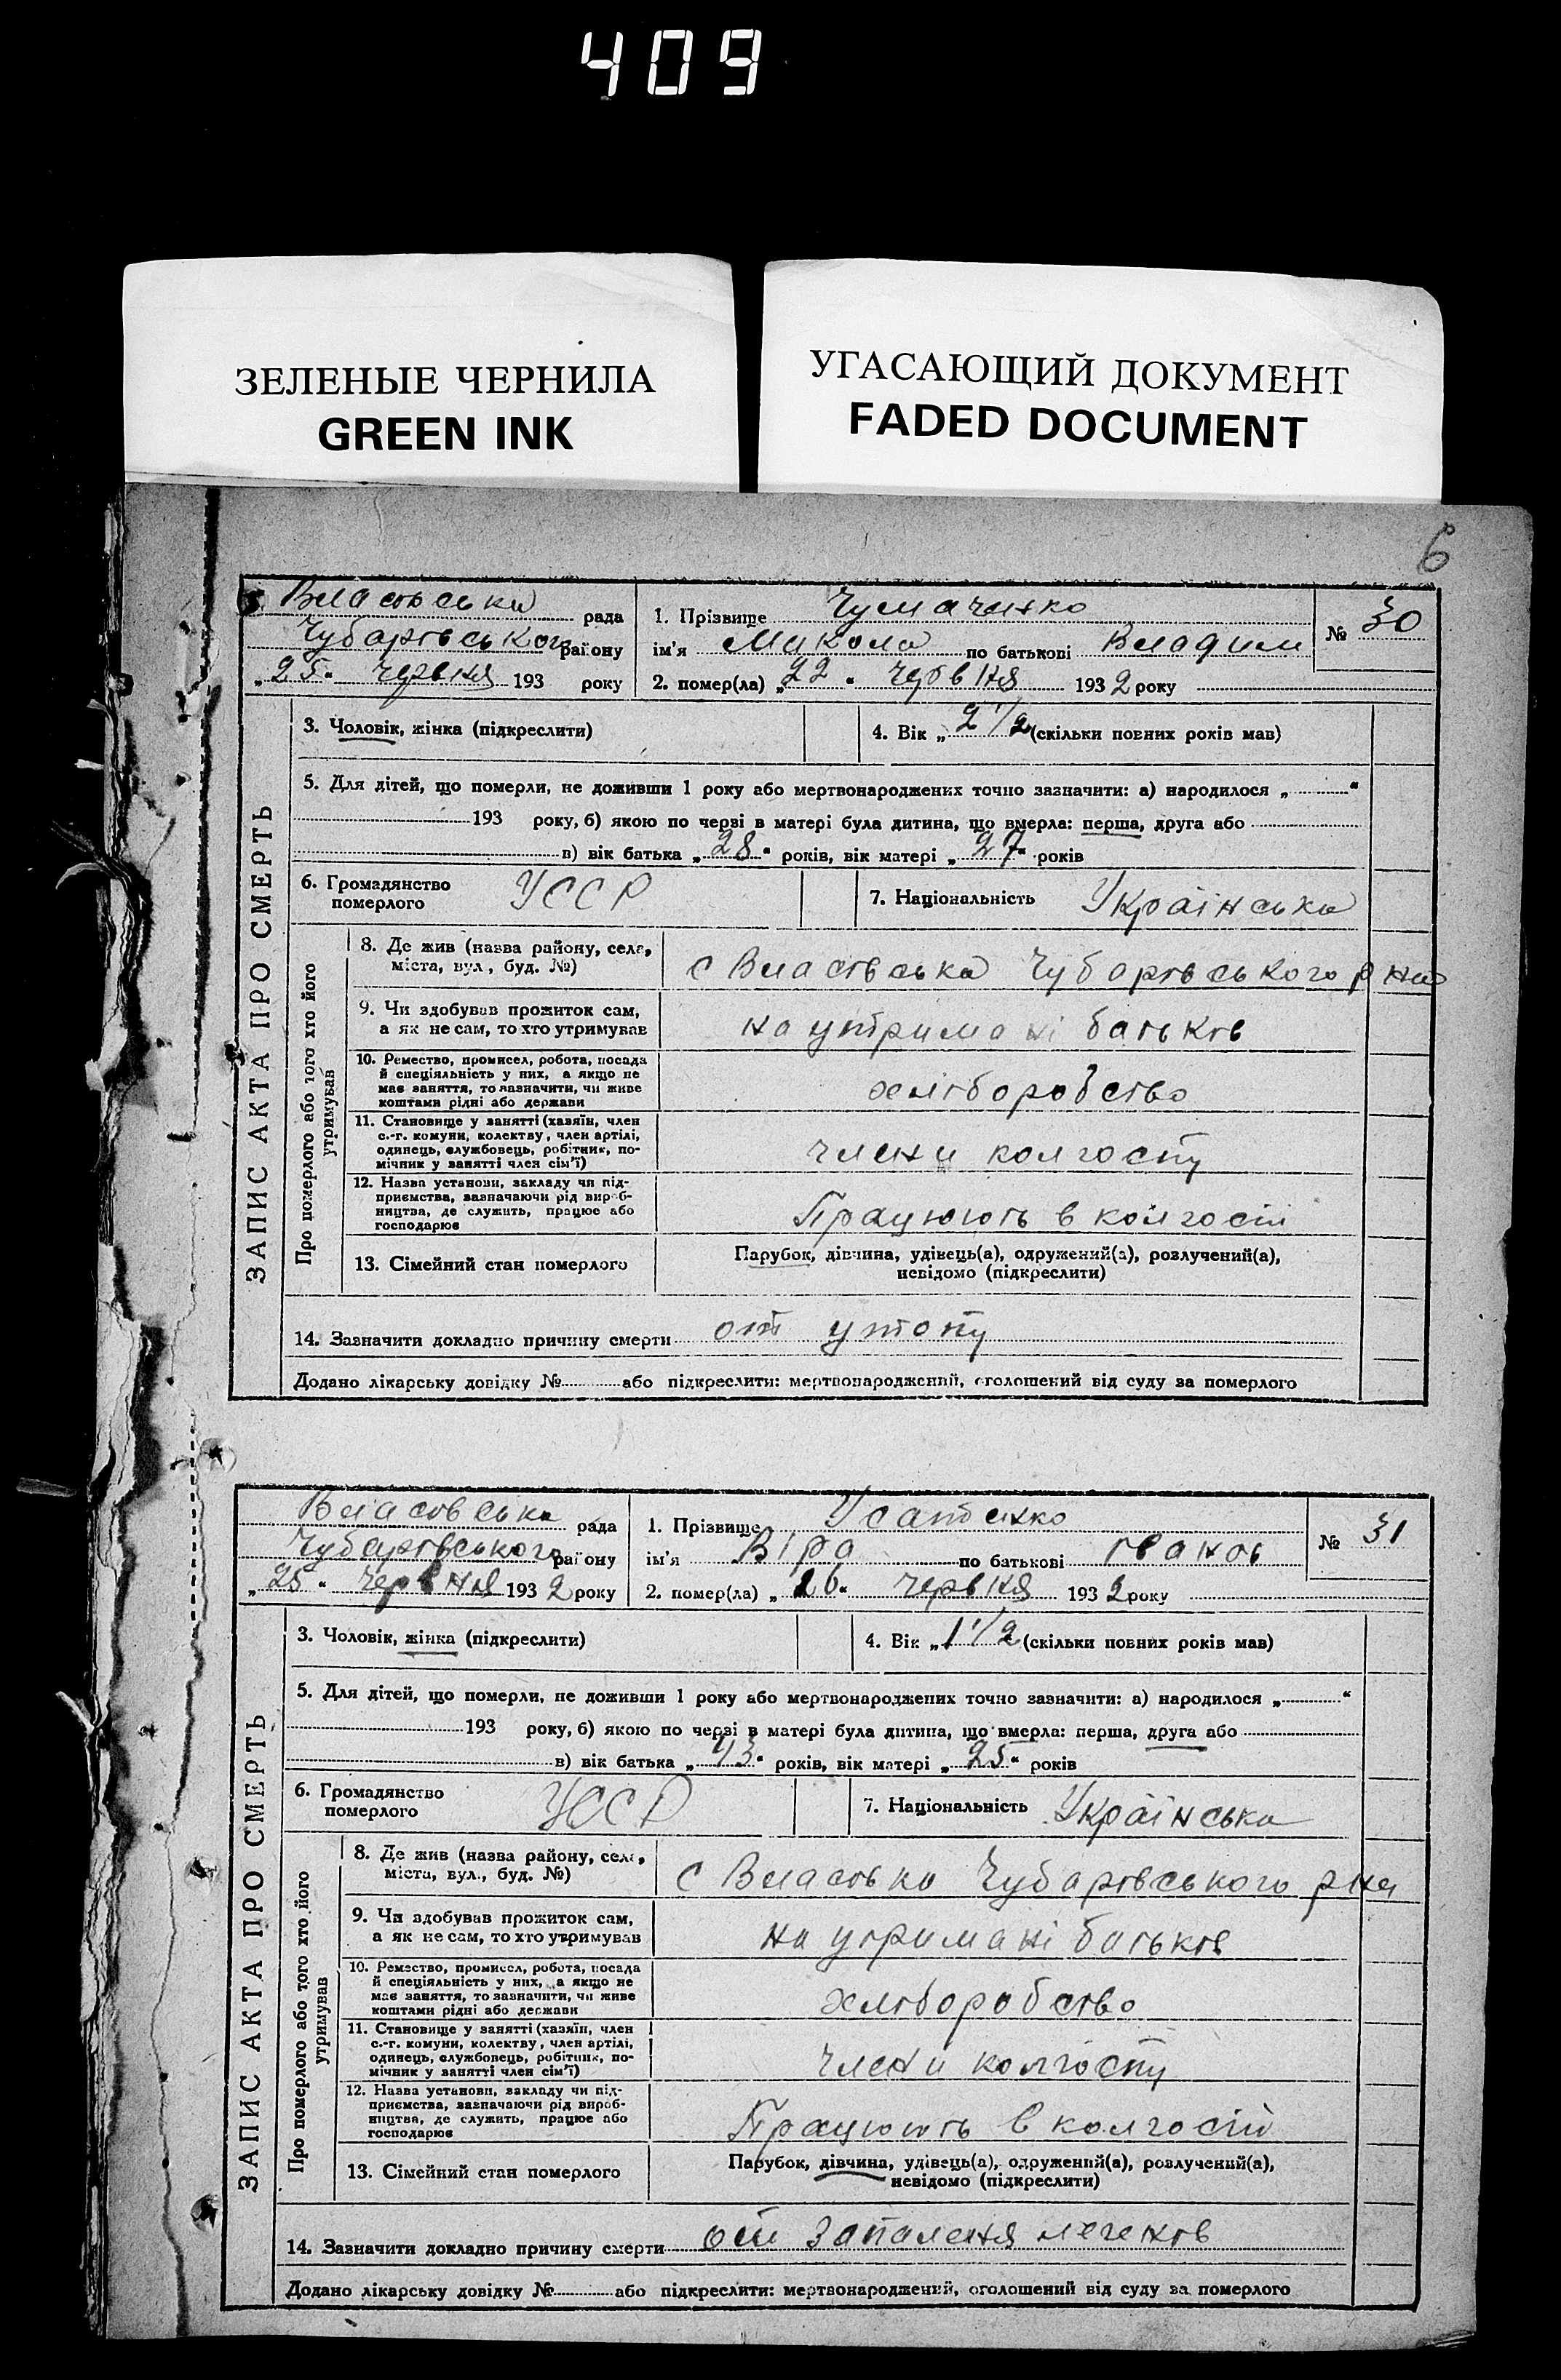 409
ЗЕЛЕНЫЕ ЧЕРНИЛА
GREEN INK
УГАСАЮЩИЙ ДОКУМЕНТ
FADED DOCUMENT
6
Власовська рада
Чубарівського району
„25“ червня 193 року
1. Прізвище Чумаченко
ім'я Микола по батькові Владим
2. помер(ла) „22“ червня 1932 року
№ 30
ЗАПИС АКТА ПРО СМЕРТЬ
3. Чоловік, жінка (підкреслити)
4. Вік „2 1/2 (скільки повних років мав)
5. Для дітей, що померли, не доживши 1 року або мертвонароджених точно зазначити: а) народилося „ “
193 року, б) якою по черві в матері була дитина, що вмерла: перша, друга або
в) вік батька „28“ років, вік матері „27“ років
6. Громадянство померлого УССР
7. Національність Українська
Про померлого або того хто його утримував
8. Де жив (назва району, села,
міста, вул., буд. №)
с Власовська Чубарівського р на
9. Чи здобував прожиток сам,
а як не сам, то хто утримував
на утримані батьків
10. Ремество, промисел, робота, посада
й спеціяльність у них, а якщо не
має заняття, то зазначити, чи живе
коштами рідні або держави
хліборобство
11. Становище у занятті (хазяїн, член
с.-г. комуни, колектву, член артілі,
одинець, службовець, робітник, по-
мічник у занятті член сім'ї)
члени колгоспу
12. Назва установи, закладу чи під-
приємства, зазначаючи рід вироб-
ництва, де служить, працює або
господарює
Працюють в колгоспі
13. Сімейний стан померлого
Парубок, дівчина, удівець(а), одружений(а), розлучений(а),
невідомо (підкреслити)
14. Зазначити докладно причину смерти от утопу
Додано лікарську довідку № або підкреслити: мертвонароджений, оголошений від суду за померлого
Власовська рада
Чубарівського району
„25“ червня 1932 року
1. Прізвище Усатенко
ім'я Віра по батькові Іванов
2. помер(ла) „26“ червня 1932 року
№ 31
ЗАПИС АКТА ПРО СМЕРТЬ
3. Чоловік, жінка (підкреслити)
4. Вік „1 1/2 (скільки повних років мав)
5. Для дітей, що померли, не доживши 1 року або мертвонароджених точно зазначити: а) народилося „ “
193 року, б) якою по черзі в матері була дитина, що вмерла: перша, друга або
в) вік батька „43“ років, вік матері „25“ років
6. Громадянство померлого УССР
7. Національність Українська
Про померлого або того хто його утримував
8. Де жив (назва району, села,
міста, вул., буд. №)
с Власовка Чубарівського р на
9. Чи здобував прожиток сам,
а як не сам, то хто утримував
на утримані батьків
10. Ремество, промисел, робота, посада
й спеціяльність у них, а якщо не
має заняття, то зазначити, чи живе
коштами рідні або держави
хліборобство
11. Становище у занятті (хазяїн, член
с.-г. комуни, колектву, член артілі,
одинець, службовець, робітник, по-
мічник у занятті член сім'ї)
члени колгоспу
12. Назва установи, закладу чи під-
приємства, зазначаючи рід вироб-
ництва, де служить, працює або
господарює
Працюють в колгоспі
13. Сімейний стан померлого
Парубок, дівчина, удівець(а), одружений(а), розлучений(а),
невідомо (підкреслити)
14. Зазначити докладно причину смерти от запаленя легенів
Додано лікарську довідку № або підкреслити: мертвонароджений, оголошений від суду за померлого